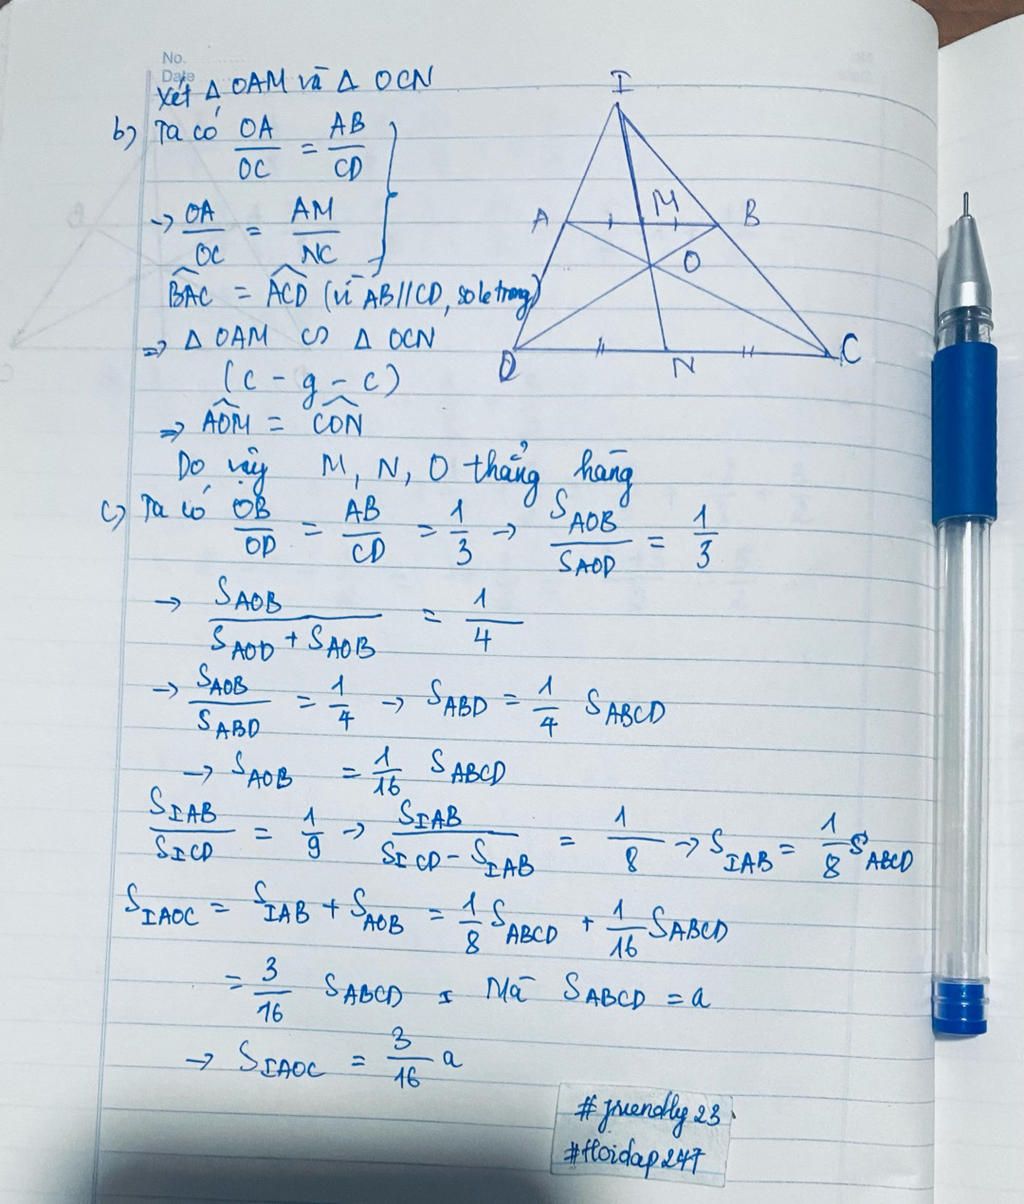 No.
Date
Xét △ OAM và △ OCN
b) Ta có OA/OC = AB/CD
→ OA/OC = AM/NC
BAC = ACD (vì AB//CD, so le trong)
⇒ △ OAM ∽ △ OCN
(c - g - c)
⇒ AOM = CON
Do vậy M, N, O thẳng hàng
c) Ta có OB/OD = AB/CD = 1/3 → S_AOB/S_AOD = 1/3
→ S_AOB/(S_AOD + S_AOB) = 1/4
→ S_AOB/S_ABD = 1/4 → S_ABD = 1/4 S_ABCD
→ S_AOB = 1/16 S_ABCD
S_IAB/S_ICD = 1/9 → S_IAB/(S_ICD - S_IAB) = 1/8 → S_IAB = 1/8 S_ABCD
S_IAOC = S_IAB + S_AOB = 1/8 S_ABCD + 1/16 S_ABCD
= 3/16 S_ABCD Mà S_ABCD = a
→ S_IAOC = 3/16 a
I
A
M
B
O
D
N
C
#friendly23
#Hoidap247